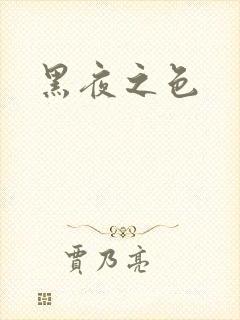 黑夜之色
賈乃亮